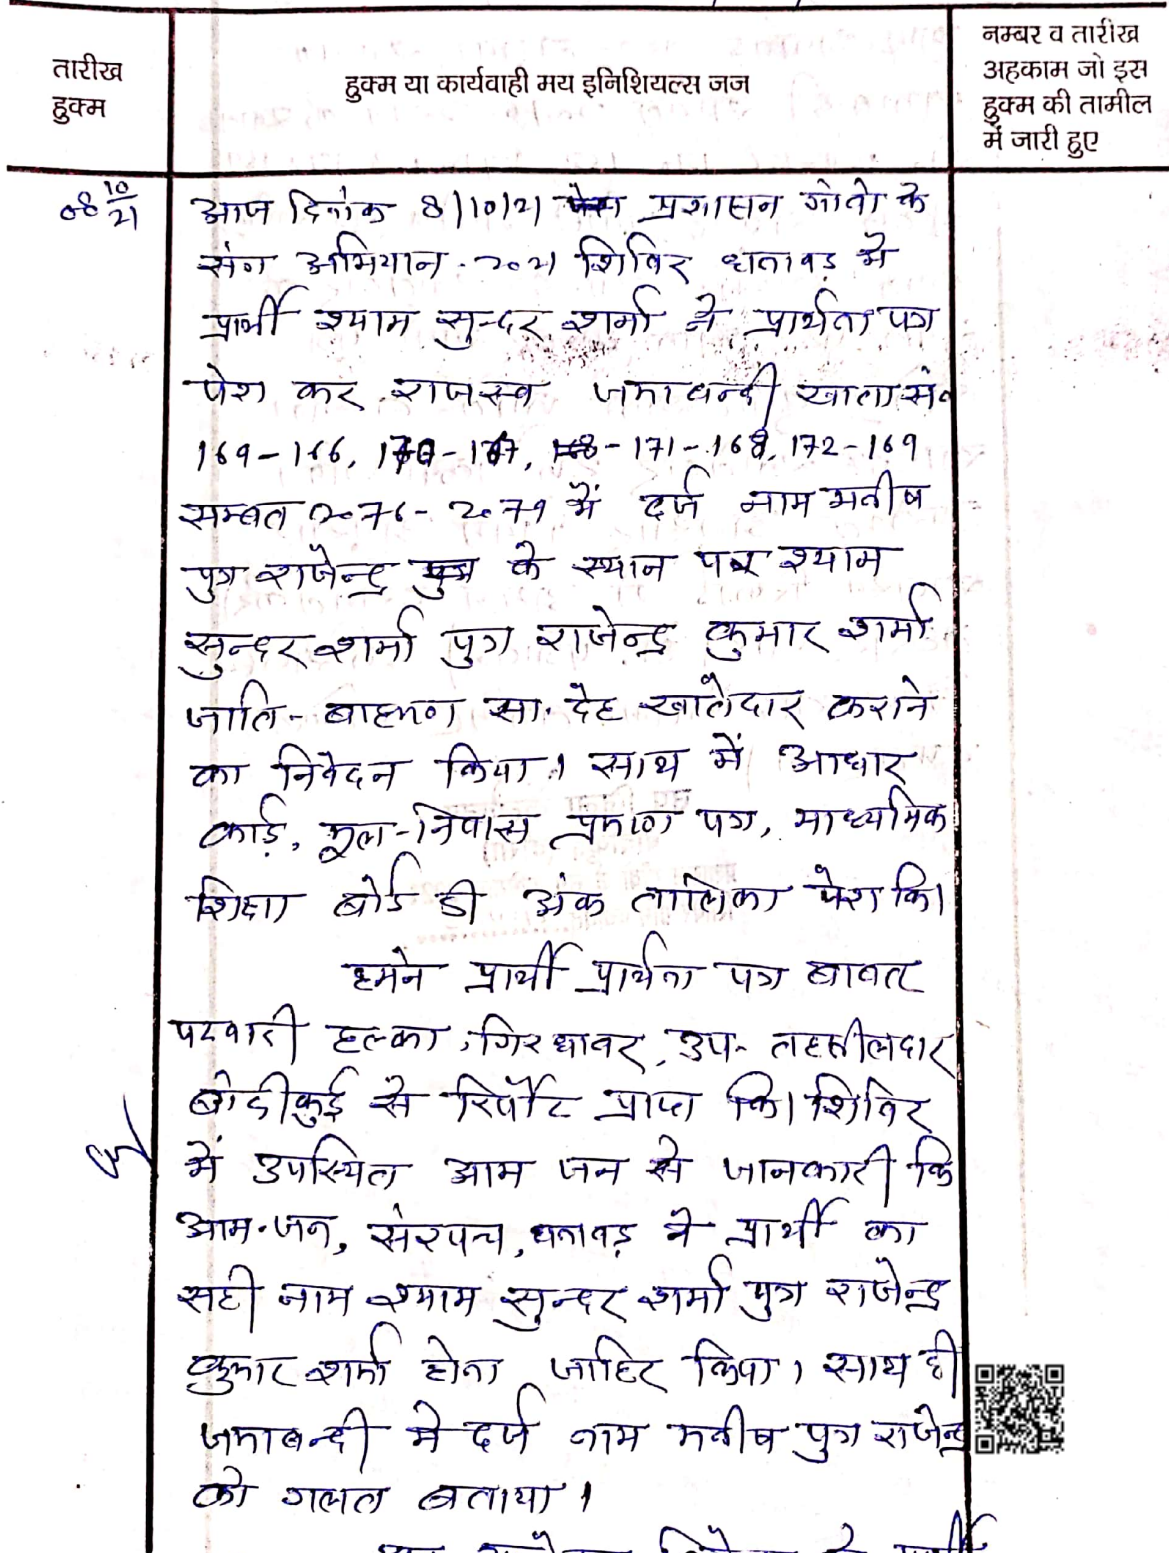 तारीख
हुक्म
हुक्म या कार्यवाही मय इनिशियल्स जज
नम्बर व तारीख
अहकाम जो इस
हुक्म की तामील
में जारी हुए
08 10/21
आज दिनांक 8/10/21 प्रशासन गांवो के
संग अभियान - 2021 शिविर धनावड़ मे
प्रार्थी श्याम सुन्दर शर्मा ने प्रार्थना पत्र
पेश कर राजस्व जमाबन्दी खाता सं०
169-166, 170-167, 171-168, 172-169
सम्बत 2076-2079 में दर्ज नाम मनीष
पुत्र राजेन्द्र के स्थान पर श्याम
सुन्दर शर्मा पुत्र राजेन्द्र कुमार शर्मा
जाति - बाहमण सा. देह खातेदार कराने
का निवेदन किया। साथ में आधार
कार्ड, मूल-निवास प्रमाण पत्र, माध्यमिक
शिक्षा बोर्ड की अंक तालिका पेश कि।
हमने प्रार्थी प्रार्थना पत्र बाबत
पटवारी हल्का, गिरधावर, उप- तहसीलदार
बांदीकुई से रिर्पोट प्राप्त कि। शिविर
में उपस्थित आम जन से जानकारी कि
आम-जन, संरपच, धनावड़ ने प्रार्थी का
सही नाम श्याम सुन्दर शर्मा पुत्र राजेन्द्र
कुमार शर्मा होना जाहिर किया। साथ ही
जमाबन्दी मे दर्ज नाम मनीष पुत्र राजेन्द्र
को गलत बताया।